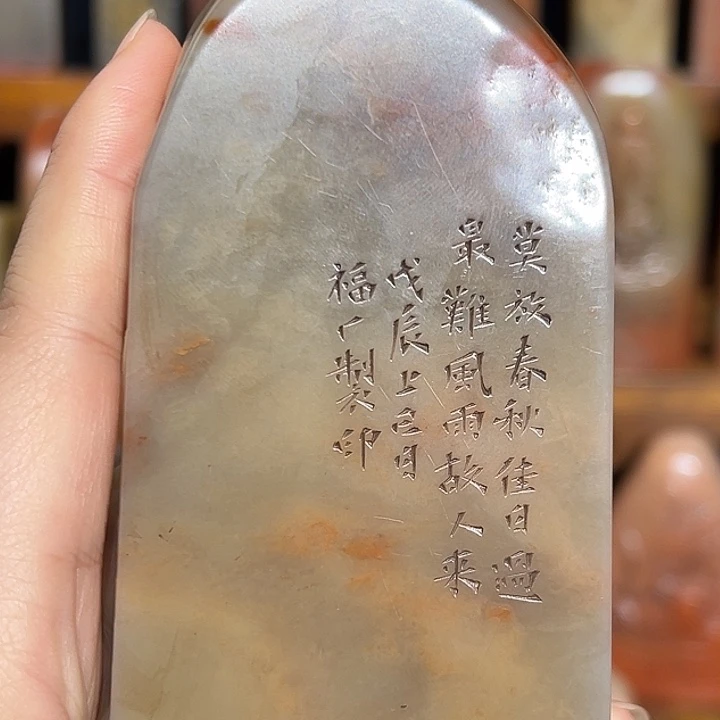 莫放春秋佳日過
最難風雨故人来
戊辰上巳月
福厂製印